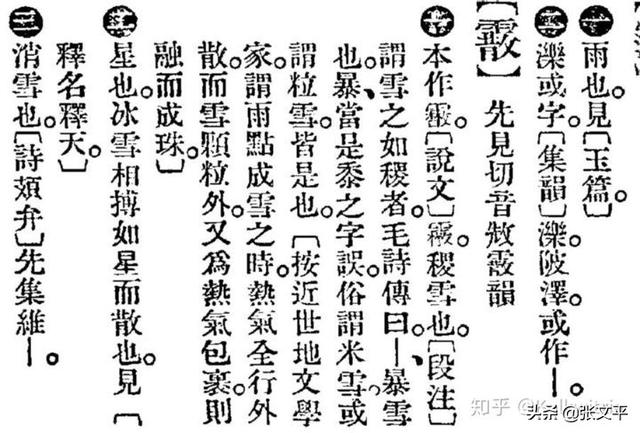 ㊀雨也。見〔玉篇〕
㊁濼或字。〔集韻〕濼陂澤。或作—。
【霰】先見切音散霰韻
㊀本作霰。〔說文〕霰稷雪也。〔段注〕
謂雪之如稷者。毛詩傳曰。—、暴雪
也。暴、當是黍之字誤。俗謂米雪。或
謂粒雪。皆是也。〔按近世地文學
家。謂雨點成雪之時。熱氣全行外
散。而雪顆粒外。又爲熱氣包裹。則
融而成珠。〕
㊁星也。冰雪相搏如星而散也。見〔
釋名釋天。〕
㊂消雪也。〔詩頍弁〕先集維—。
头条 @张文平